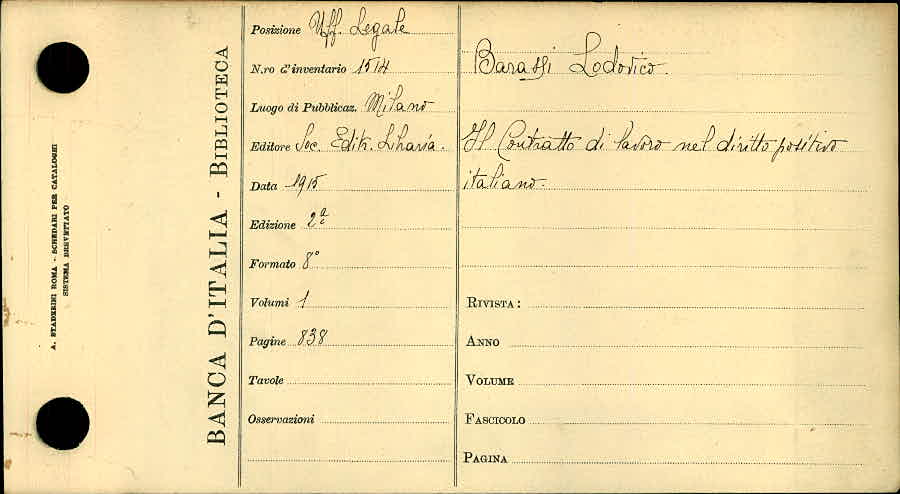 A. STADERINI ROMA - SCHEDARI PER CATALOGHI
SISTEMA BREVETTATO
BANCA D'ITALIA - BIBLIOTECA
Posizione Uff. Legale
N.ro d'inventario 1514
Luogo di Pubblicaz. Milano
Editore Soc. Editr. Libraria.
Data 1915
Edizione 2ª
Formato 8°
Volumi 1
Pagine 838
Tavole
Osservazioni
Barassi Lodovico.
Il Contratto di lavoro nel diritto positivo
italiano.
RIVISTA:
ANNO
VOLUME
FASCICOLO
PAGINA